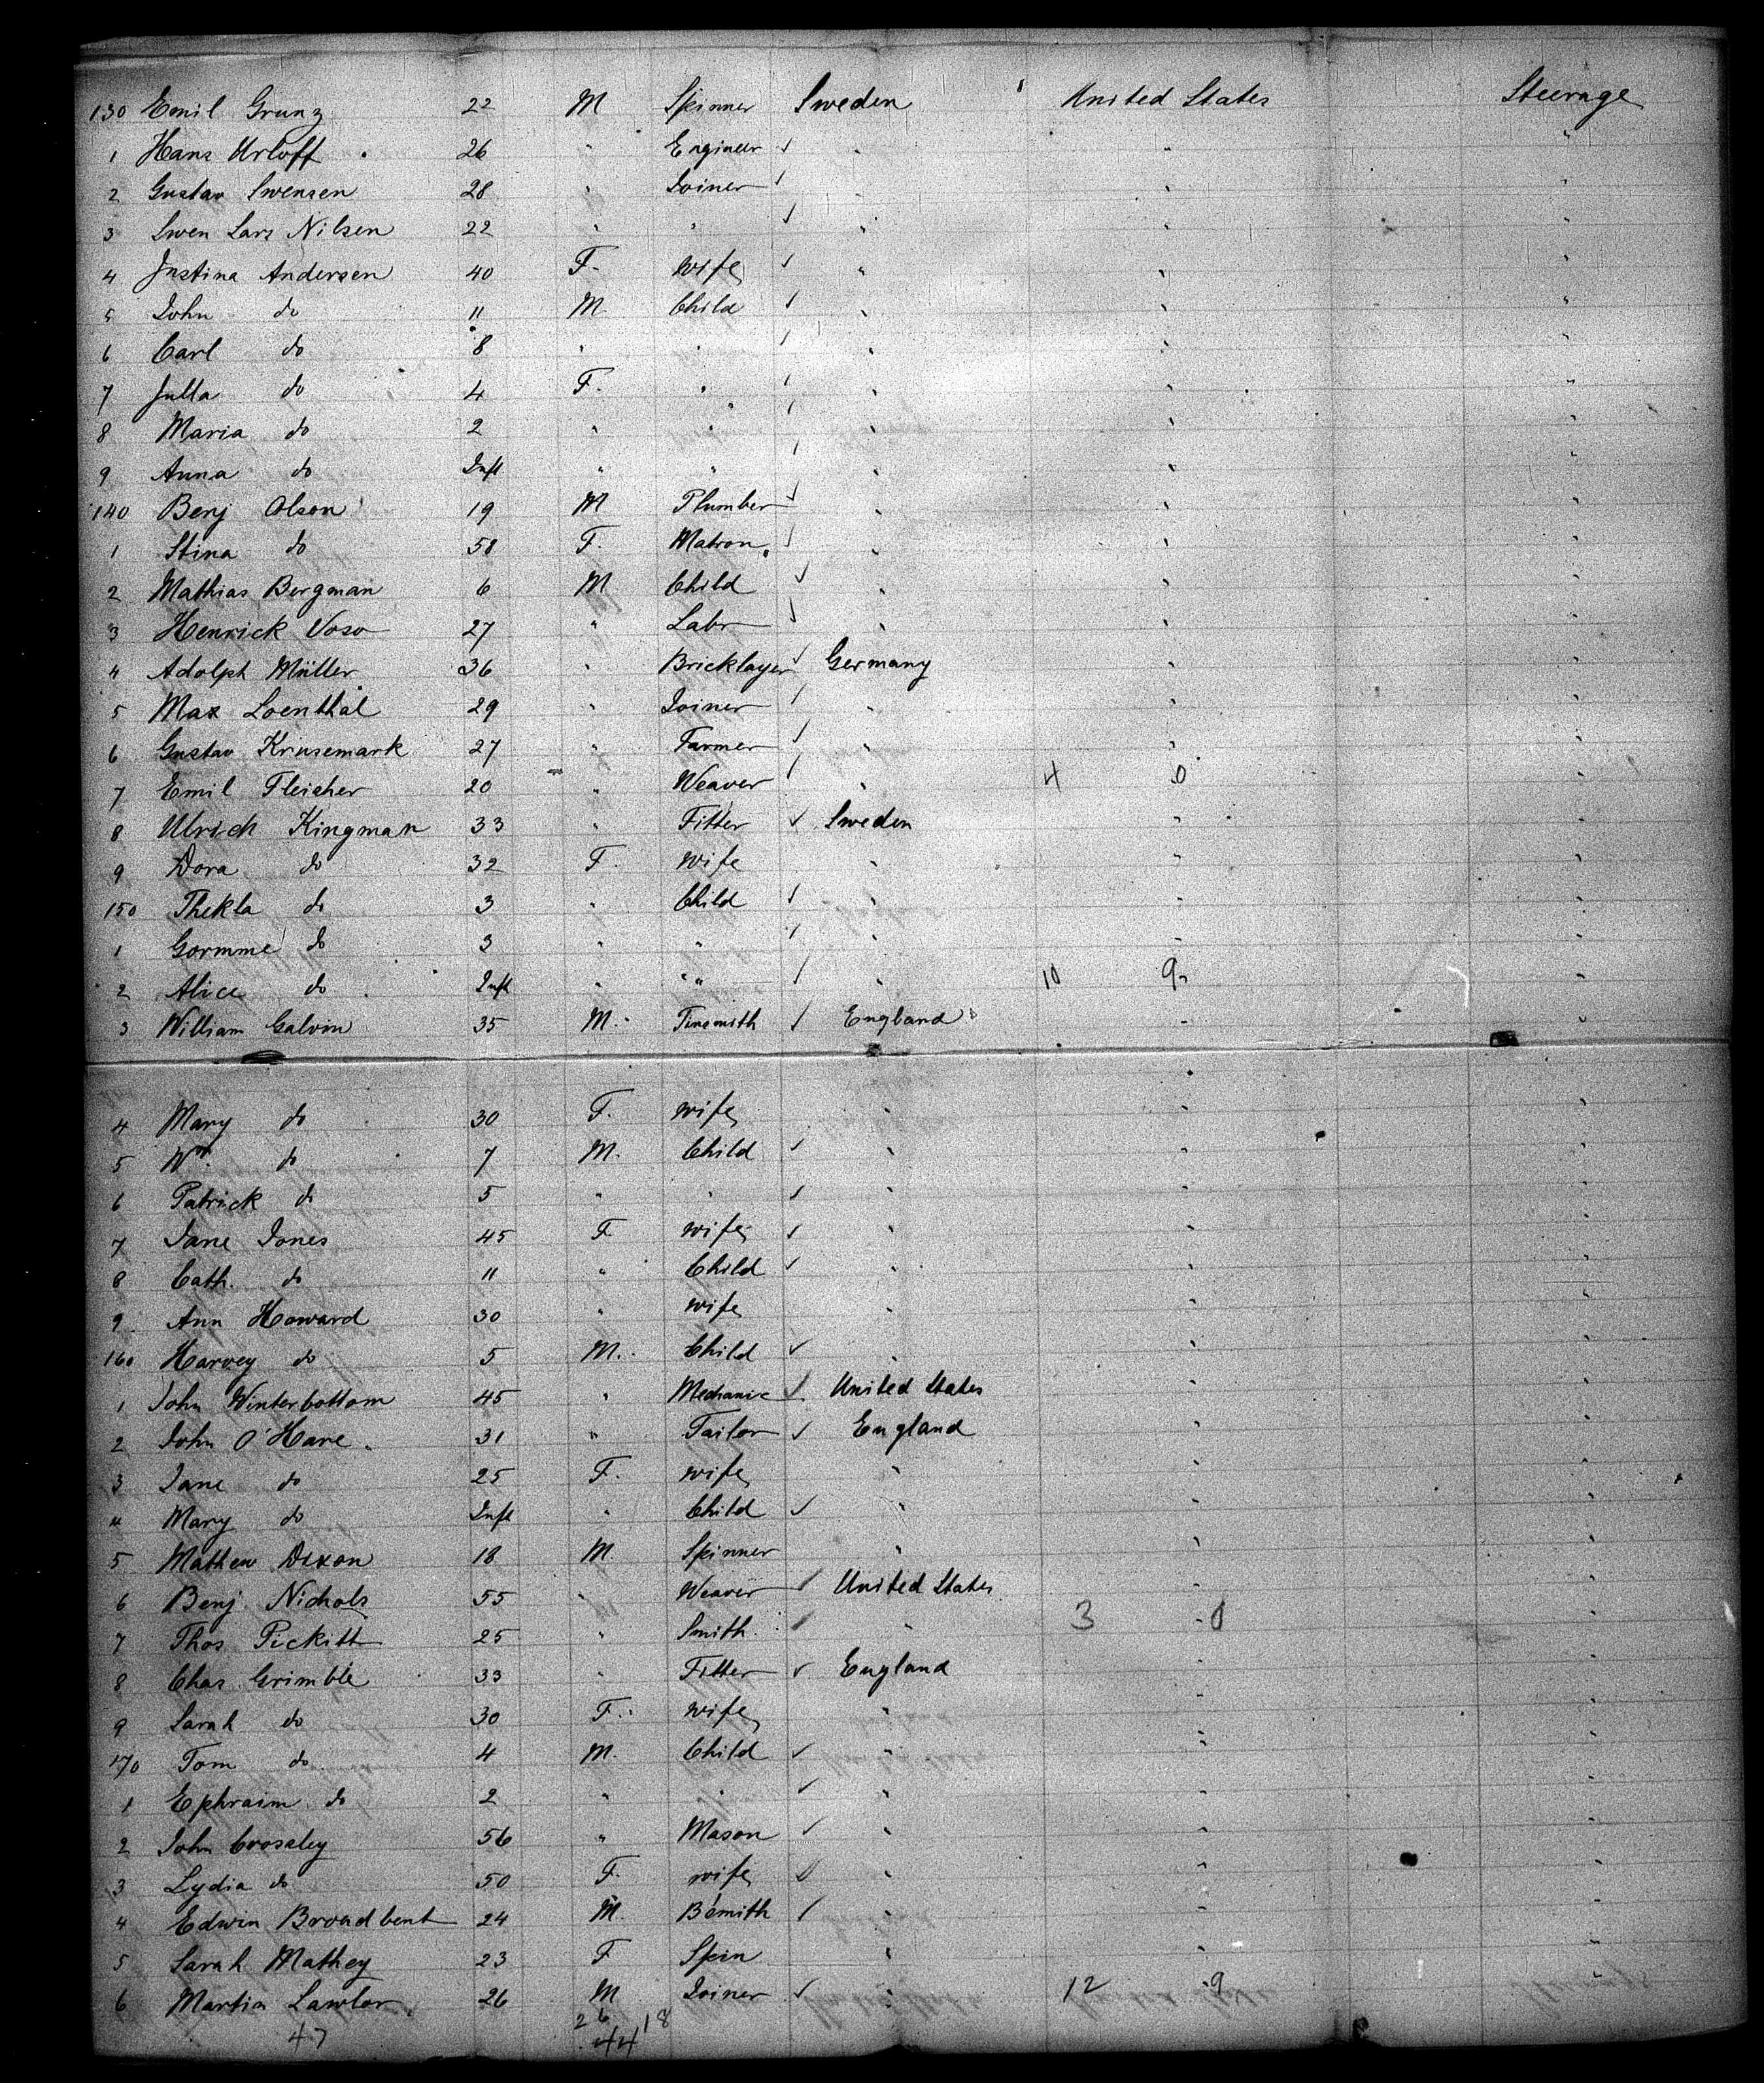 130 Emil Grunz 22 M Spinner Sweden United States Steerage
1 Hans Urloff 26 " Engineer ✓ " " "
2 Gustav Swensen 28 " Joiner ✓ " "
3 Swen Lars Nilsen 22 " " ✓ " " "
4 Justina Andersen 40 F. wife ✓ " " "
5 John do 11 M Child ✓ " " "
6 Carl do 8 " " ✓ " " "
7 Julla do 4 F. " ✓ " " "
8 Maria do 2 " " ✓ " " "
9 Anna do Inft " " ✓ " " "
140 Benj Olson 19 M Plumber ✓ " " "
1 Stina do 58 F. Matron ✓ " " "
2 Mathias Bergman 6 M Child ✓ " " "
3 Henrick Voso 27 " Labr ✓ " " "
4 Adolph Müller 36 " Bricklayer ✓ Germany " "
5 Max Loenthal 29 " Joiner ✓ " " "
6 Gustav Krusemark 27 " Farmer ✓ " " "
7 Emil Fleisher 20 " Weaver ✓ " 4 0 "
8 Ulrich Kingman 33 " Fitter ✓ Sweden " "
9 Dora do 32 F. wife " " "
150 Thekla do 3 " Child ✓ " " "
1 Gormme do 3 " " ✓ " " "
2 Alice do Inft " " " ✓ " 10 9 "
3 William Galvin 35 M. Tinsmith ✓ England " "
4 Mary do 30 F. wife " " "
5 Wm. do 7 M. Child ✓ " " "
6 Patrick do 5 " " ✓ " " "
7 Jane Jones 45 F wife ✓ " " "
8 Cath. do 11 " Child ✓ " " "
9 Ann Howard 30 " wife " " "
160 Harvey do 5 M. Child ✓ " " "
1 John Winterbottom 45 " Mechanic ✓ United States " "
2 John O'Hare 31 " Tailor ✓ England " "
3 Jane do 25 F. wife " " "
4 Mary do Inft " Child ✓ " " "
5 Mathew Dixon 18 M. Spinner " " "
6 Benj. Nichols 55 " Weaver ✓ United States " "
7 Thos Pickitt 25 " Smith ✓ " 3 0 "
8 Chas Grimble 33 " Fitter ✓ England " "
9 Sarah do 30 F. wife " " "
170 Tom do 4 M. Child ✓ " " "
1 Ephraim do 2 " " ✓ " " "
2 John Crossley 56 " Mason ✓ " " "
3 Lydia do 50 F. wife ✓ " " "
4 Edwin Broadbent 24 M. B'smith ✓ " " "
5 Sarah Mathey 23 F Spin " " "
6 Martin Lawlor 26 M Joiner ✓ " 12 9 "
47 26 18
44